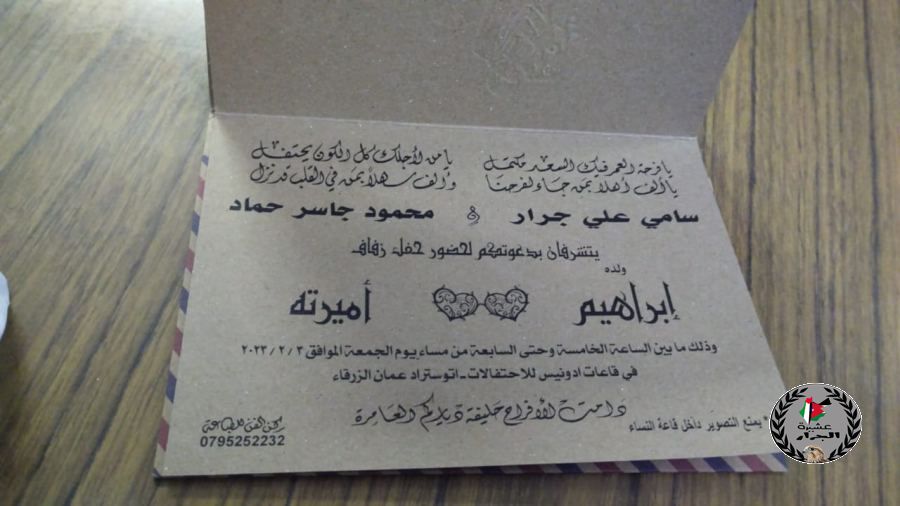 يا فرحة العمر فيك السعد مكتمل
يا من لأجلك كل الكون يحتفل
يا ألف أهلا بمن جاء لفرحنا
وألف سهلا بمن في القلب قد نزل
سامي علي جرار & محمود جاسر حماد
يتشرفان بدعوتكم لحضور حفل زفاف
ولده
إبراهيم أميرته
وذلك ما بين الساعة الخامسة وحتى السابعة من مساء يوم الجمعة الموافق ٢٠٢٣/٢/٣
في قاعات ادونيس للاحتفالات - اتوستراد عمان الزرقاء
دامت الأفراح حليفة دياركم العامرة
* يمنع التصوير داخل قاعة النساء
ركن الفن للطباعة
0795252232
عشيرة
الجرار